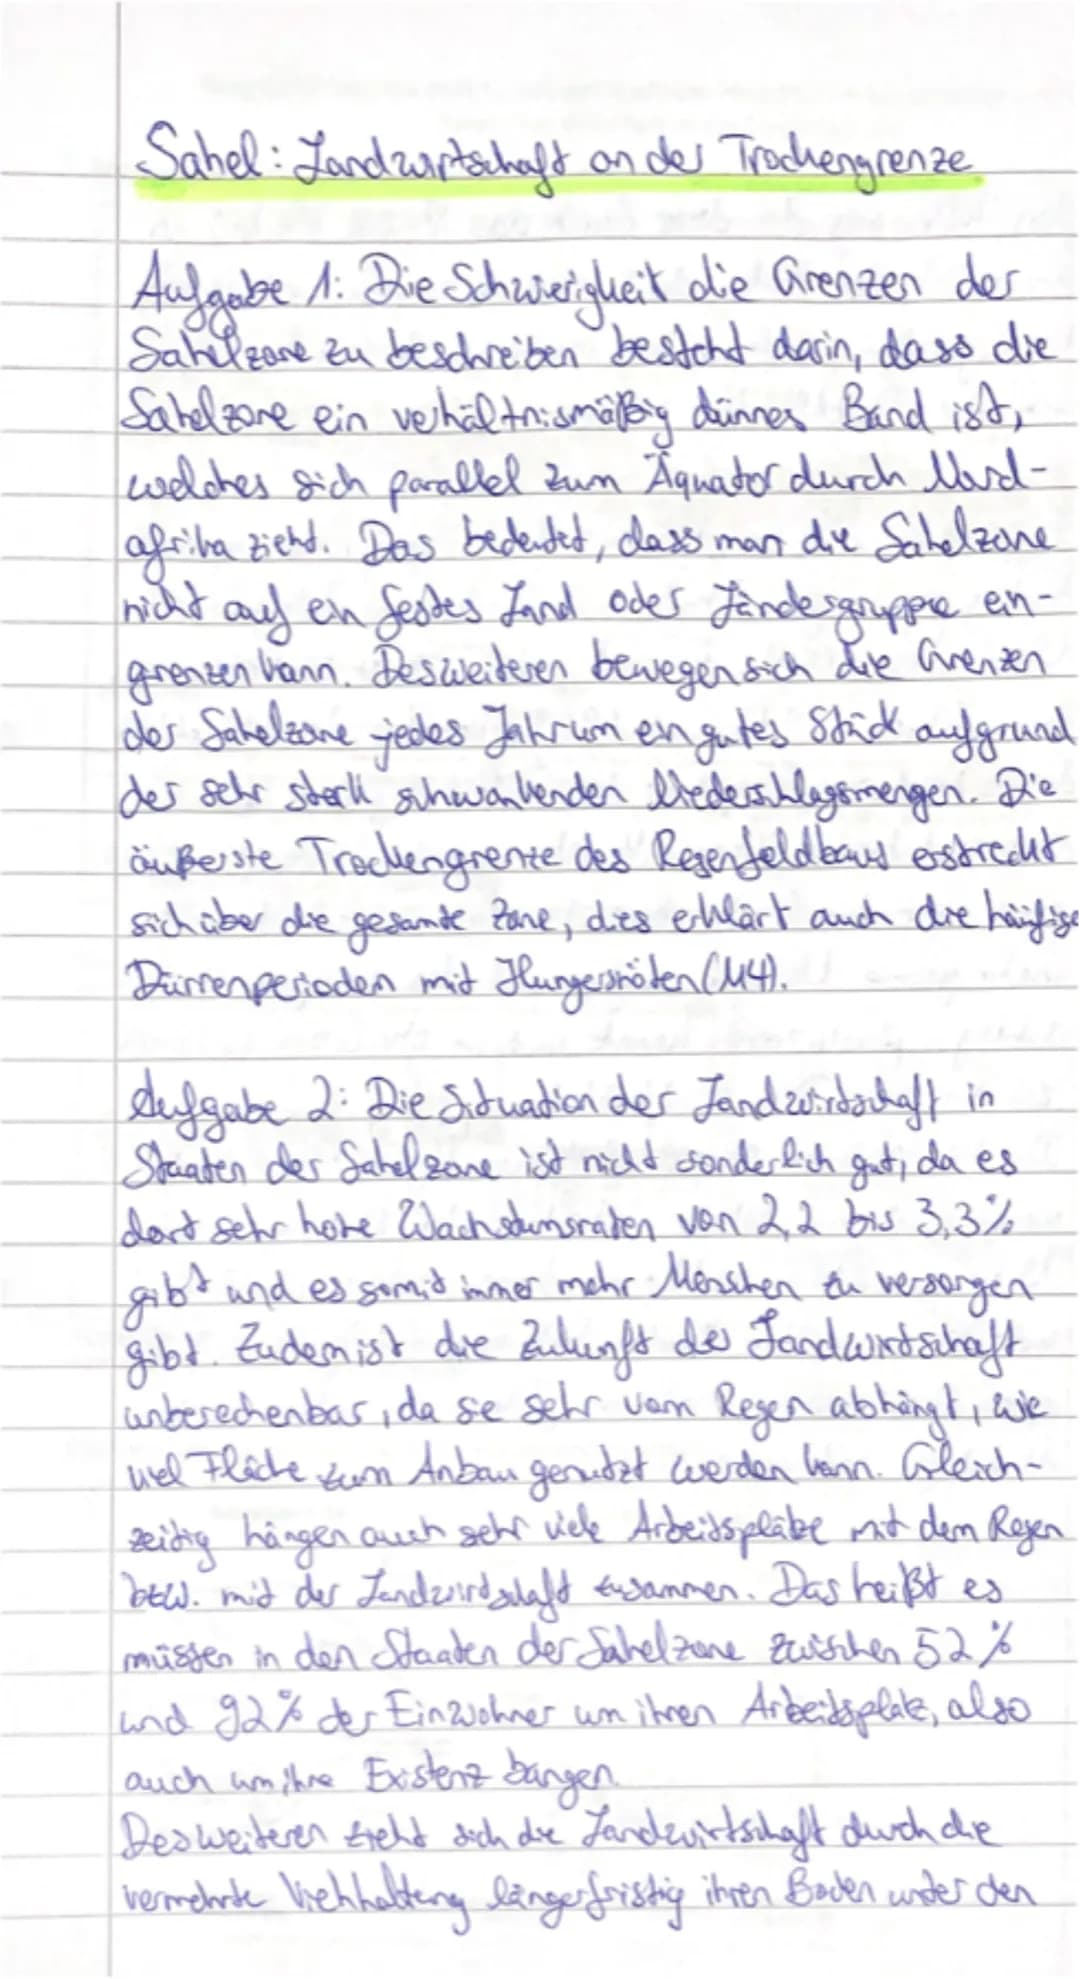 Sahel: Landwirtschaft an der Trockengrenze
Aufgabe 1: Die Schwierigkeit die Grenzen der
Sahelzone zu beschreiben besteht darin, dass die
Sahelzone ein verhältnismäßig dünnes Band ist,
welches sich parallel zum Äquator durch Nord-
afrika zieht. Das bedeutet, dass man die Sahelzone
nicht auf ein festes Land oder Ländergruppe ein-
grenzen kann. Desweiteren bewegen sich die Grenzen
der Sahelzone jedes Jahr um ein gutes Stück aufgrund
der sehr stark schwankenden Niederschlagsmengen. Die
äußerste Trockengrenze des Regenfeldbaus erstreckt
sich über die gesamte Zone, dies erklärt auch die häufige
Dürrenperioden mit Hungersnöten (M4).
Aufgabe 2: Die Situation der Landwirtschaft in
Staaten der Sahelzone ist nicht sonderlich gut, da es
dort sehr hohe Wachstumsraten von 2,2 bis 3,3%
gibt und es somit immer mehr Menschen zu versorgen
gibt. Zudem ist die Zukunft der Landwirtschaft
unberechenbar, da sie sehr vom Regen abhängt, wie
viel Fläche zum Anbau genutzt werden kann. Gleich-
zeitig hängen auch sehr viele Arbeitsplätze mit dem Regen
bzw. mit der Landwirtschaft zusammen. Das heißt es
müssen in den Staaten der Sahelzone zwischen 52%
und 92% der Einwohner um ihren Arbeitsplatz, also
auch um ihre Existenz bangen.
Desweiteren zieht sich die Landwirtschaft durch die
vermehrte Viehhaltung längerfristig ihren Boden unter den